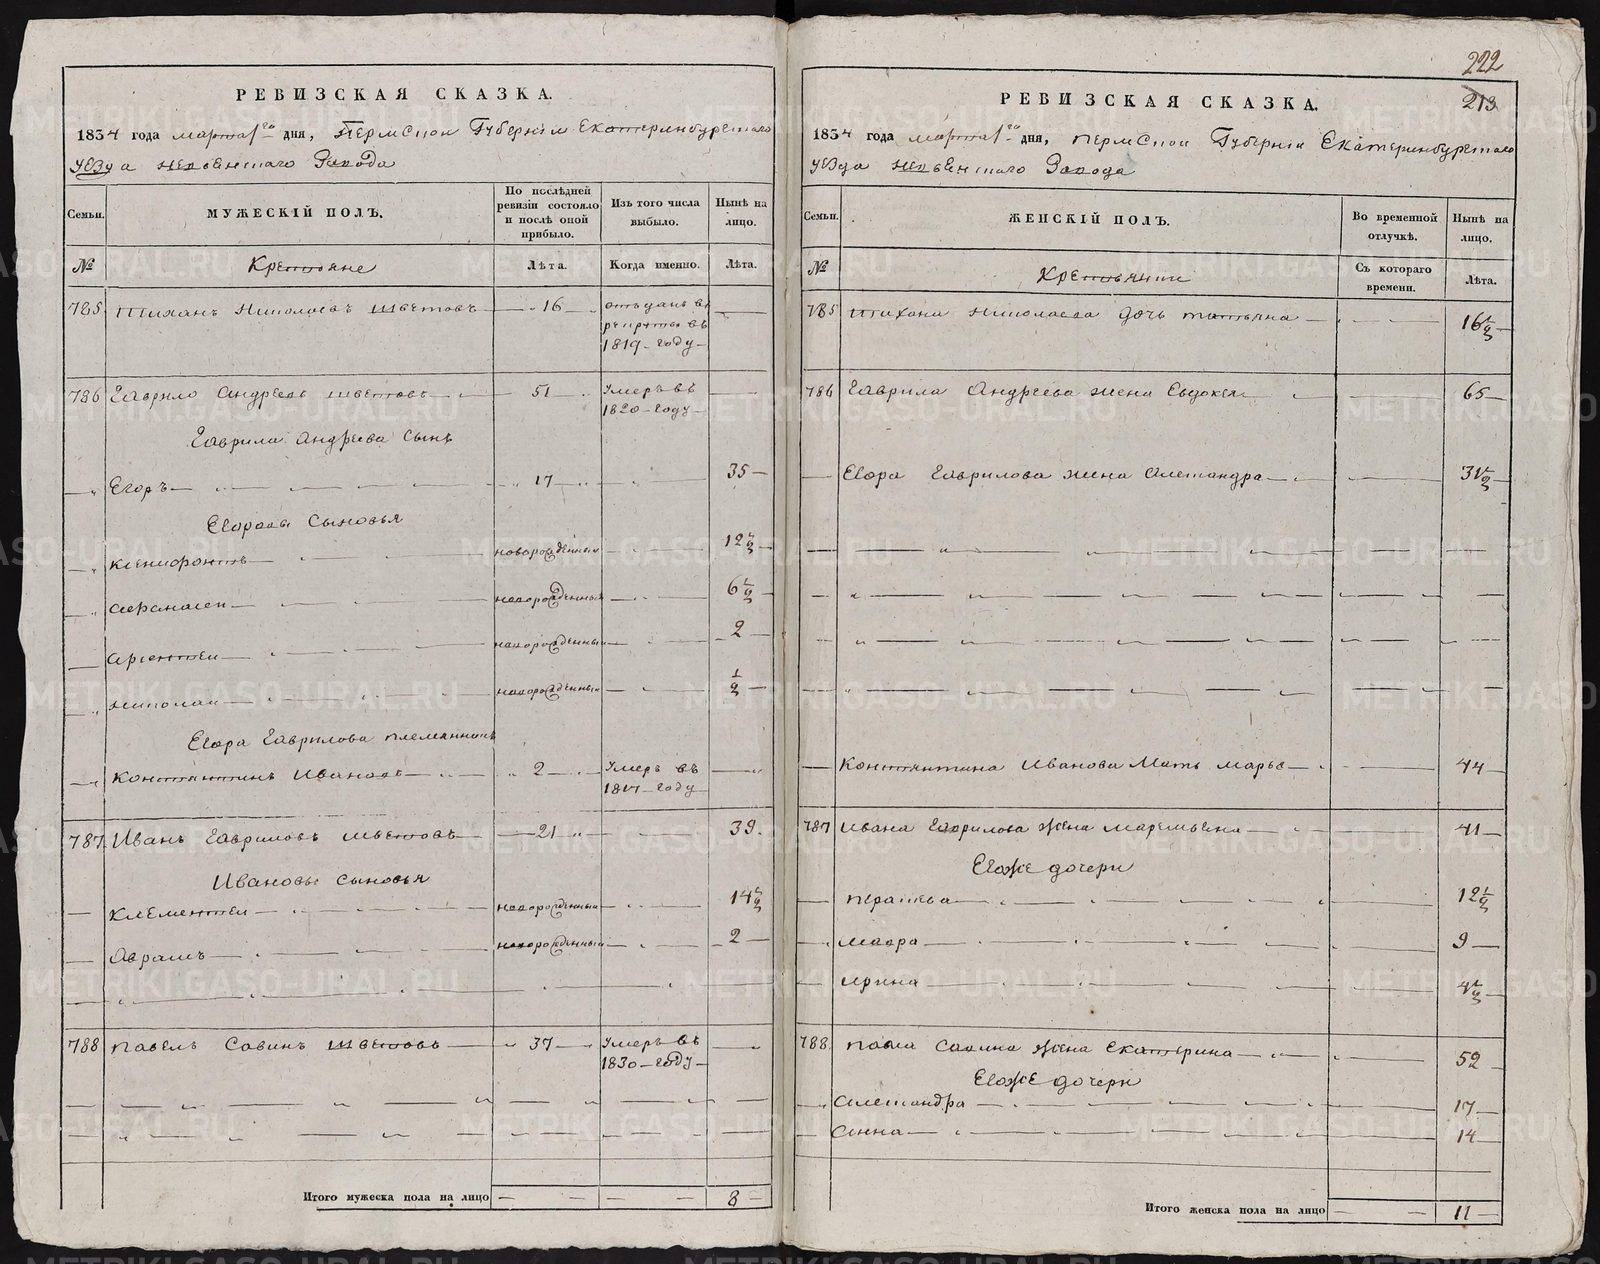 РЕВИЗСКАЯ СКАЗКА.
1834 года марта 1го дня, Пермской Губернии Екатеринбургскаго
уезда невьянскаго Завода
Семьи.
МУЖЕСКІЙ ПОЛЪ.
По послѣдней ревизіи состояло и послѣ оной прибыло.
Изъ того числа выбыло.
Нынѣ на лицо.
№
Крестьяне
Лѣта.
Когда именно.
Лѣта.
785 Тиханъ Николаевъ Шветовъ 16 отъданъ въ рекруты въ 1819 году
786 Гаврило Андреевъ Шветовъ 51 Умеръ въ 1820 году
Гаврила Андреева Сынъ
Егоръ 17 35
Егоровы Сыновья
Ксенифонтъ новорожденный 12 1/2
Афанасей новорожденный 6 1/2
Арсентей новорожденный 2
Николай новорожденный 1/2
Егора Гаврилова племянникъ
Константинъ Ивановъ 2 Умеръ въ 1817 году
787 Иванъ Гавриловъ Шветовъ 21 39.
Ивановы Сыновья
Клементей новорожденный 14 1/2
Аврамъ новорожденный 2
788 Павелъ Савинъ Шветовъ 37 Умеръ въ 1830 году
Итого мужеска пола на лицо 8
222
213
РЕВИЗСКАЯ СКАЗКА.
1834 года марта 1го дня, Пермской Губернии Екатеринбургскаго
уезда невьянскаго Завода
Семьи.
ЖЕНСКІЙ ПОЛЪ.
Во временной отлучкѣ.
Нынѣ на лицо.
№
Крестьянки
Съ котораго времени.
Лѣта.
785 Тихана Николаева дочь татьяна 16 1/2
786 Гаврила Андреева жена Евдокея 65
Егора Гаврилова жена Александра 31 1/2
Константина Иванова Мать марья 44
787 Ивана Гаврилова Жена маремьяна 41
Егоже дочери
Парасковья 12 1/2
мавра 9
Ирина 4 1/2
788. Павла Савина Жена Екатерина 52
Егоже дочери
Александра 17
Анна 14
Итого женска пола на лицо 11
METRIKI.GASO-URAL.RU